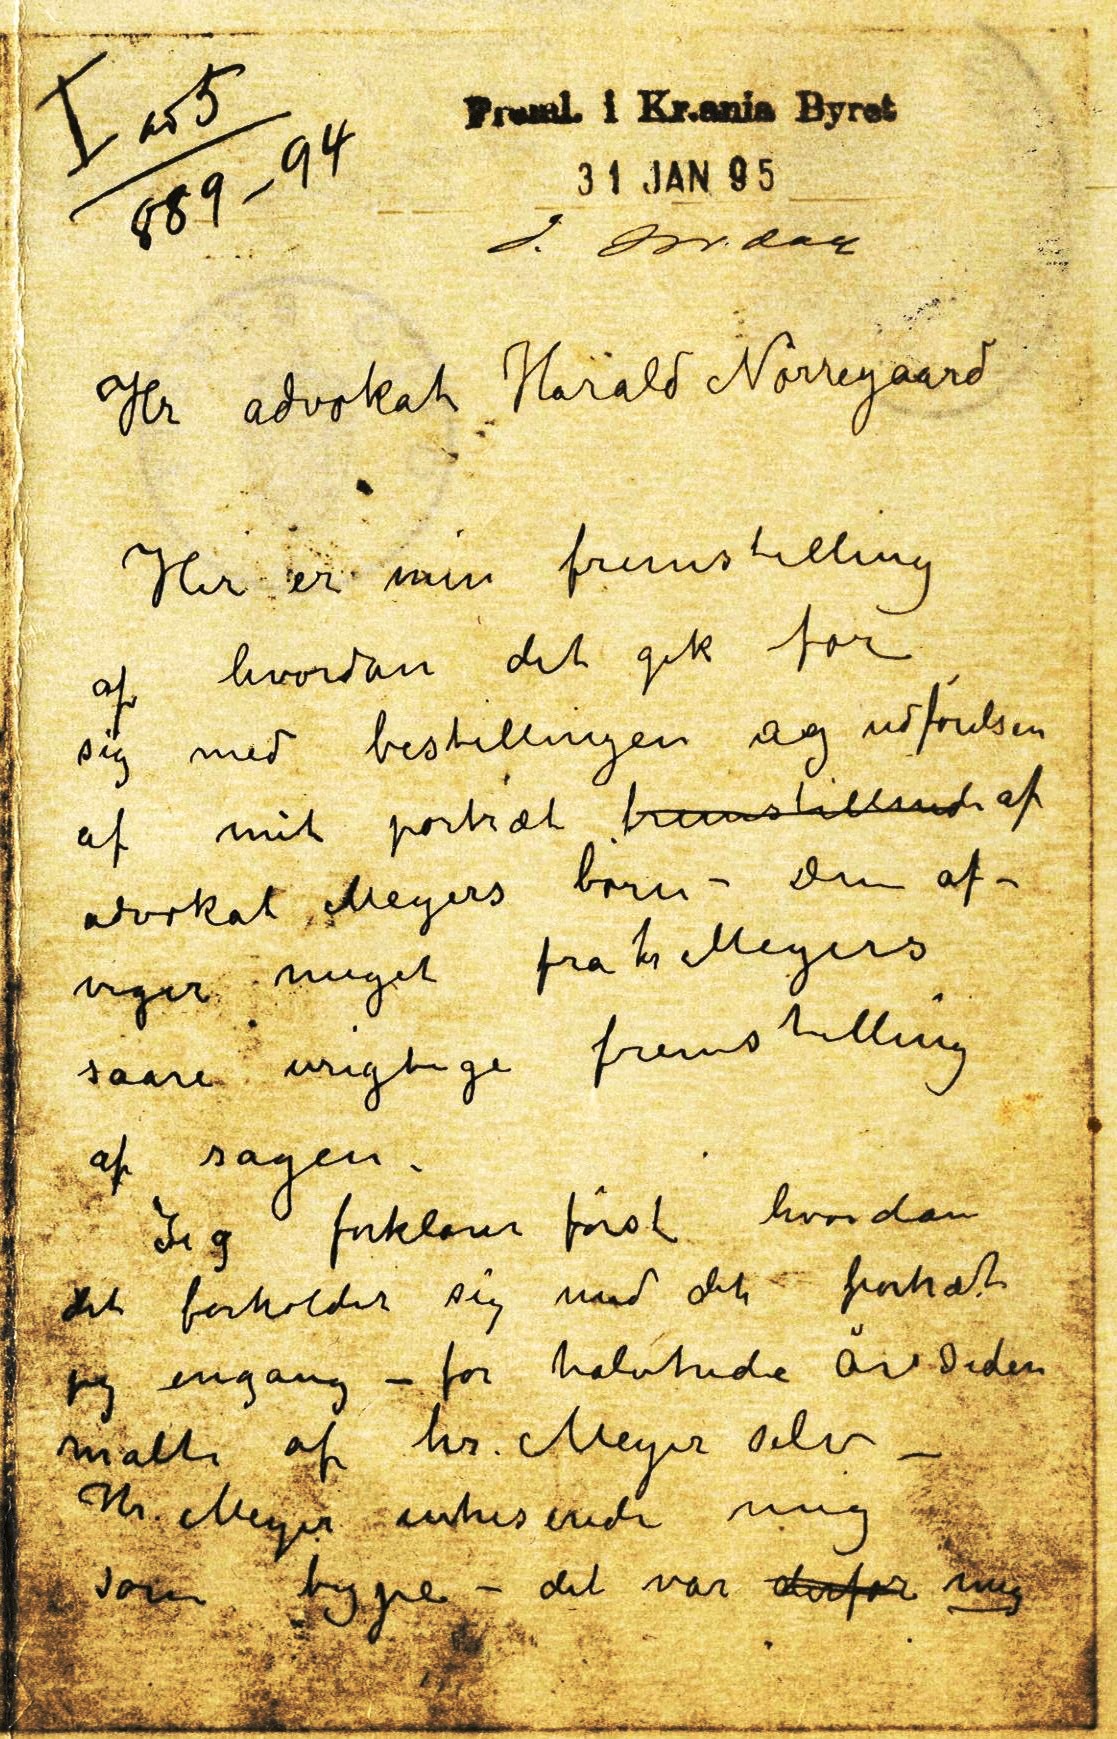 I ad 5
889-94
Freml. i Kr.ania Byret
31 JAN 95
J.
Hr advokat Harald Nörregaard
Her er min fremstilling
af hvordan det gik for
sig med bestillingen og udförelsen
af mit portræt fremstillende af
advokat Meyers börn – Den af-
viger meget fra hr Meyers
saare urigtige fremstilling
af sagen.
Jeg forklarer först hvordan
det forholder sig med det portræt
jeg engang – for halvtredie år siden
malte af hr. Meyer selv –
Hr. Meyer intreserede mig
som type – det var derfor mig